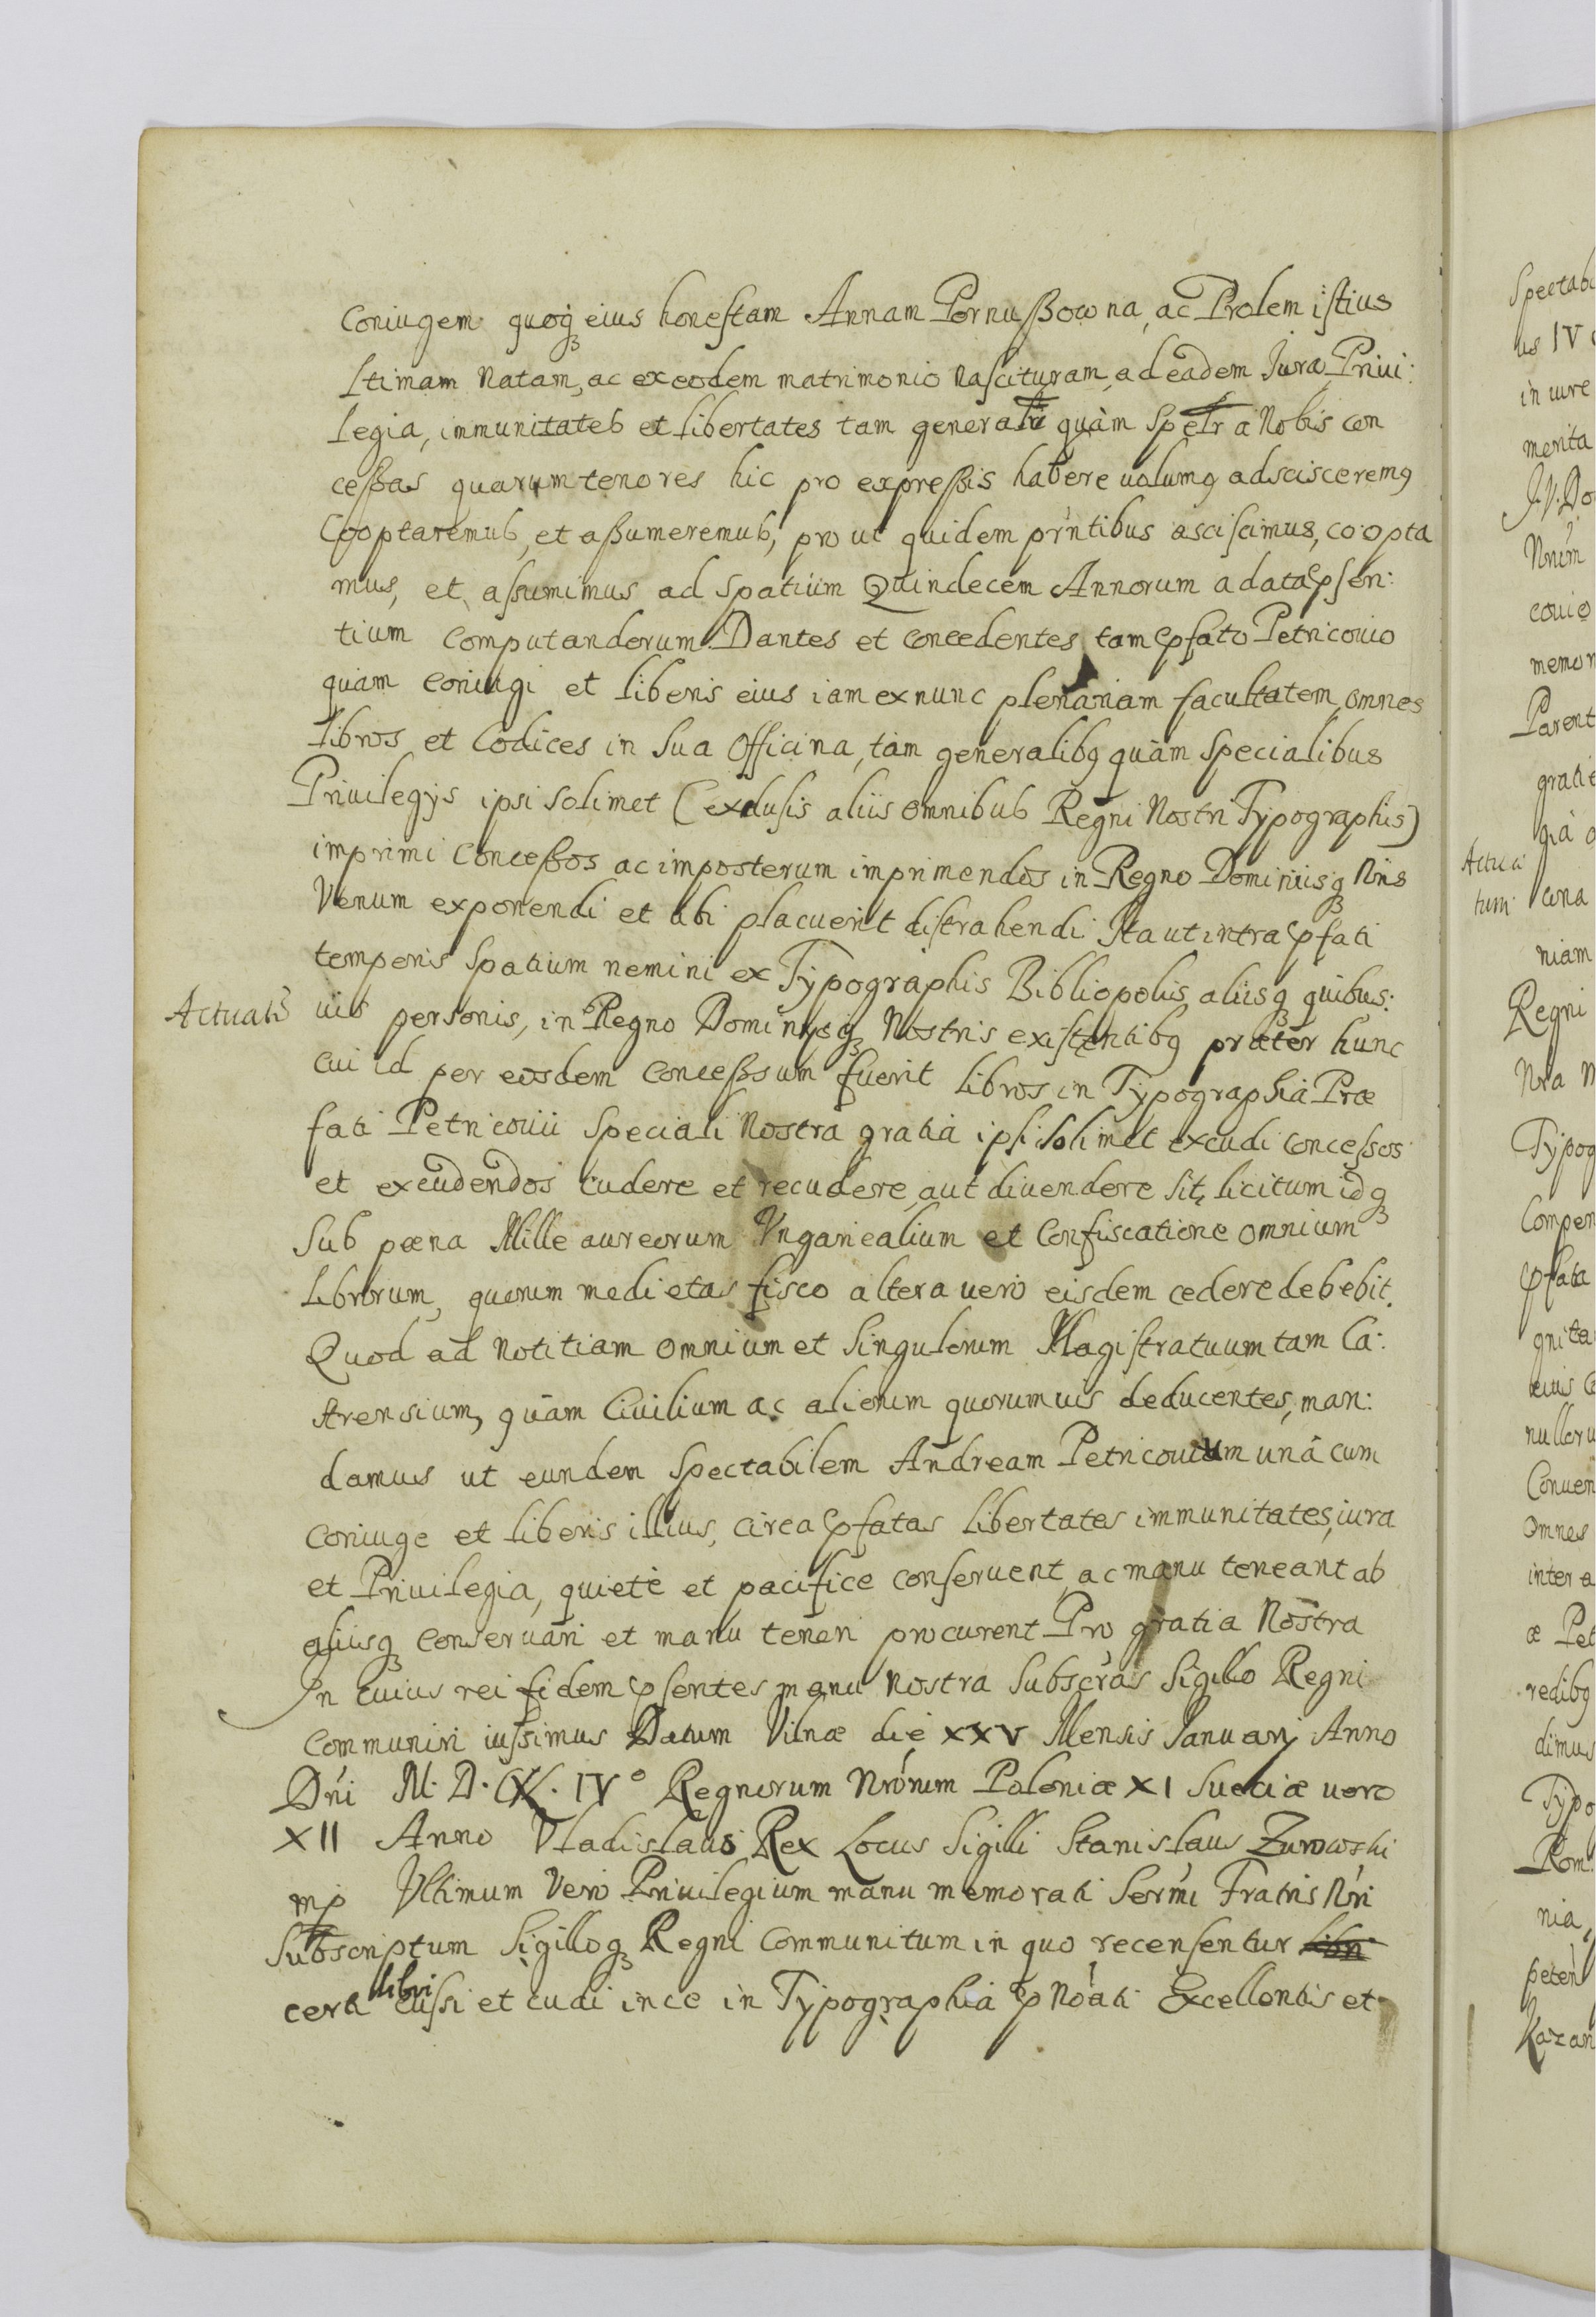 Coniugem quoq; eius honestam Annam Pornußowna, ac Prolem istius
ltimam Natam, ac ex eodem matrimonio nascituram, ad eadem Iura Priui:
legia, immunitates et libertates tam generalr quàm Spelr a Nobis con
ceßas quarum tenores hic pro expreßis habere uolumq adscisceremq
Cooptaremus, et aßumeremus, pro ut quidem prntibus asciscimus, coopta
mus, et assumimus ad spatium Quindecem Annorum a data pſen:
tium computandorum Dantes et concedentes tam pfato Petricouio
quàm coniugi et liberis eius iam ex nunc plenariam facultatem, omnes
libros et Codices in Sua Officina, tàm generalibq quàm specialibus
Priuilegys ipsi solimet (exclusis aliis omnibus Regni Nostri Typographis)
imprimi conceßos ac imposterum imprimendos in Regno Dominiisq; Nris
Venum exponendi et ubi placuerit distrahendi Ita ut intra pfati
temperis Spatium nemini ex Typographis Bibliopolis, aliisq; quibus:
Actuatis uis personis, in Regno Dominysq; Nostris existentibq præter hunc
cui id per eosdem conceßsum fuerit libros in Typographia Præ
fati Petricouii Speciali Nostra gratia ipsi solimet excudi concessos
et excudendos cudere et recudere, aut diuendere sit licitum idq;
Sub pœna Mille aureorum Vngaricalium et Confiscatione omnium
librorum, quorum medietas fisco altera vero eisdem cedere debebit.
Quod ad Notitiam omnium et Singulorum Magistratuum tam Ca:
strensium, quàm Ciuilium ac aliorum quorumuis deducentes, man:
damus ut eundem Spectabilem Andream Petricouium unà cum
coniuge et liberis illius, circa pfatas libertates immunitates, iura
et Priuilegia, quietè et pacifice conseruent, ac manu teneant ab
aliisq; conseruari et manu teneri procurent Pro gratia Nostra
In cuius rei fidem psentes manu nostra Subscras Sigillo Regni
communiri iussimus Datum Vilnæ die XXV Mensis Ianuarij Anno
Dni M. D. CXL. IV° Regnorum Nrorum Poloniæ XI Sueciæ uero
XII Anno Vladislaus Rex Locus Sigilli Stanislaus Zurowski
mp Vltimum Vero Priuilegium manu memorati Sermi Fratris Nri
Subscriptum Sigilloq; Regni Communitum in quo recensentur
certi libri cussi et cudi in ce in Typographia p Noati Excellentis et
Spectabi
us IV
in iure
merita
J. V. Do
Nnum
couio
memor
Parent
gratie
gia
Actua
tum
cona
niam
Regni
Nra
Typog
Compen
pfata
gnita
euis
nulloru
Conuen
Omnes
inter a
æ Pet
redibq
dimus
Typo
Rom.
nia,
peten
Kazan